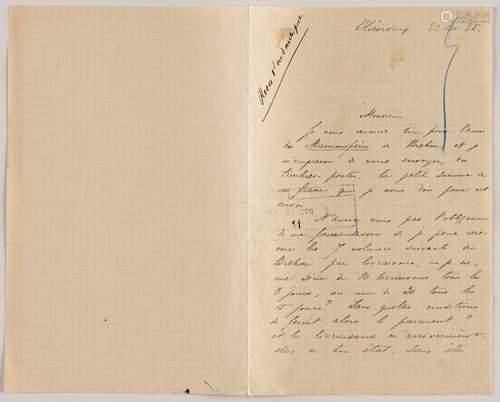 Clairvaux 22 85
Monsieur
Je vous remercie bien pour l'envoi
des Mammifères de Brehm et je
m'empresse de vous envoyer, en
timbres-postes, la petite somme de
un franc que je vous dois pour cet
envoi.
DEC
N'auriez vous pas l'obligeance
de me faire savoir si je peux rece-
voir les 7 volumes suivants de
Brehm par livraisons, — p. ex.
une série de 10 livraisons tous les
8 jours, ou une de 20 tous les
15 jours? Dans quelles conditions
se ferait alors le paiement?
et les livraisons m'arriveraient-
elles en bon état, sans être